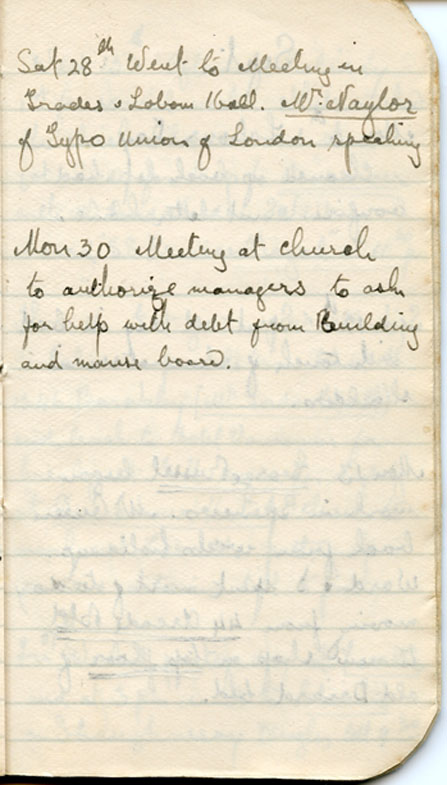 Sat 28th Went to Meeting in
Trades & Labour Hall. Mr. Naylor
of Typo Union of London speaking
Mon 30 Meeting at church
to authorize managers to ask
for help with debt from Building
and manse board.